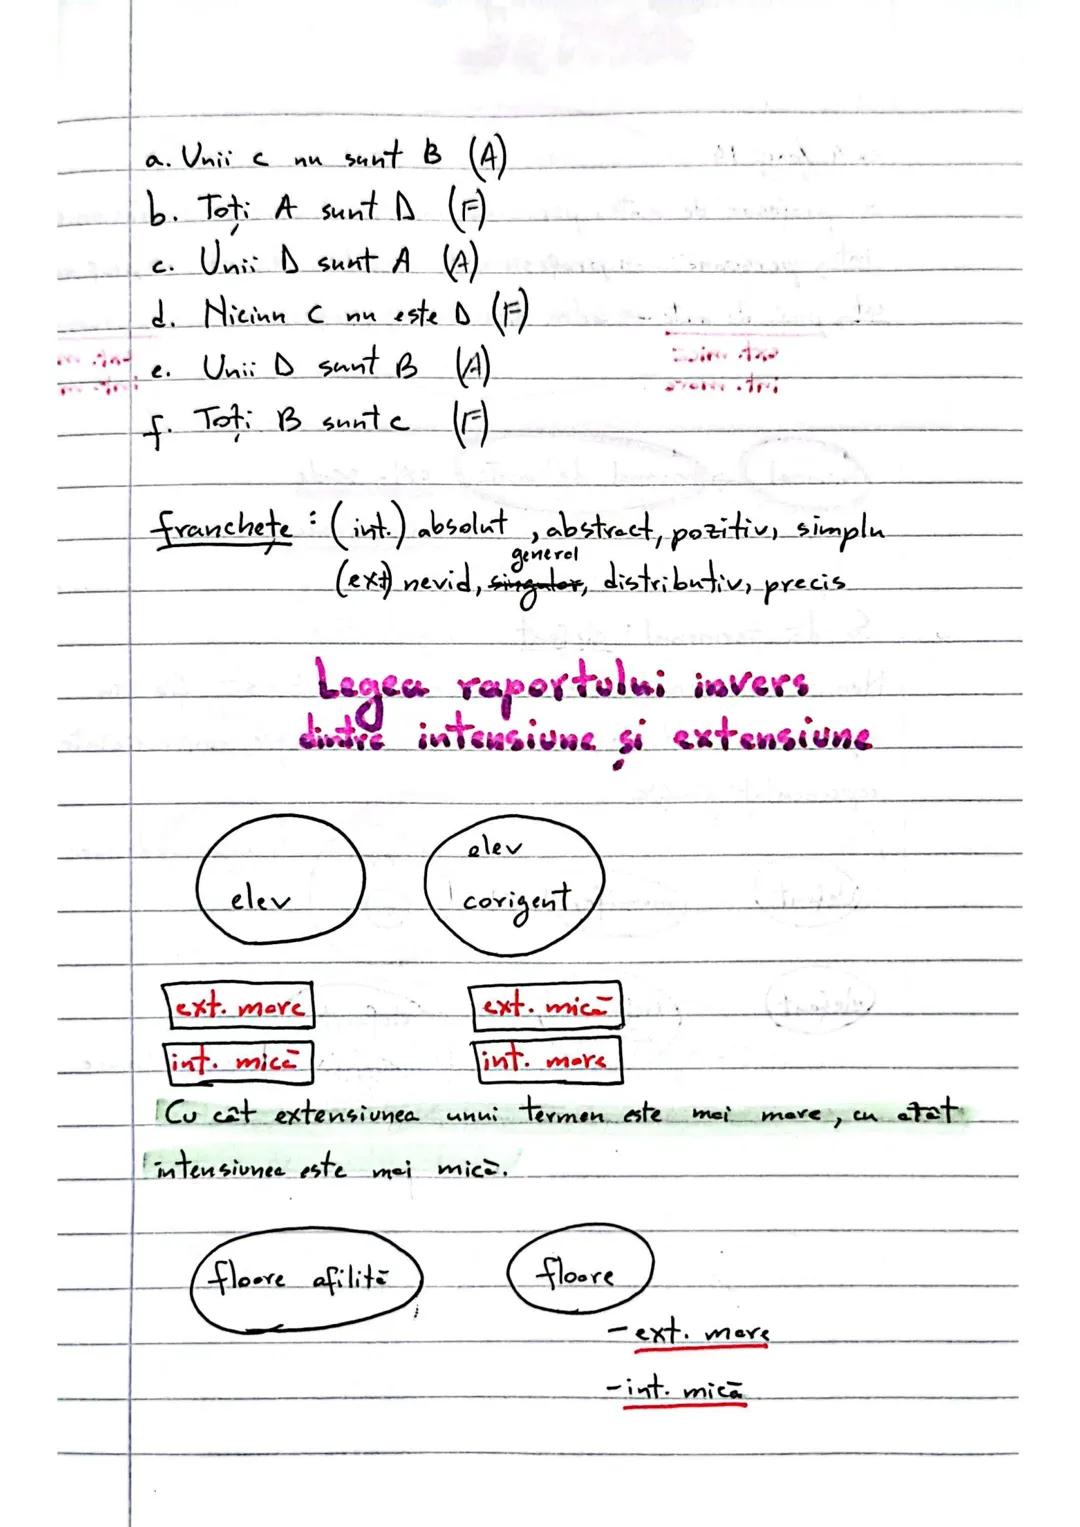 a. Unii C nu sunt B (A)
b. Toți A sunt D (F)
c. Unii D sunt A (A)
d. Niciun C nu este D (F)
e. Unii D sunt B (A)
f. Toți B sunt C (F)
franchețe : (int.) absolut, abstract, pozitiv, simplu
general
(ext) nevid, singular, distributiv, precis
Legea raportului invers
dintre intensiune și extensiune
elev
elev
corigent
ext. mare
ext. mică
int. mică
int. mare
Cu cât extensiunea unui termen este mai mare, cu atât
intensiunea este mai mică.
floare afilită
floare
- ext. mare
- int. mică